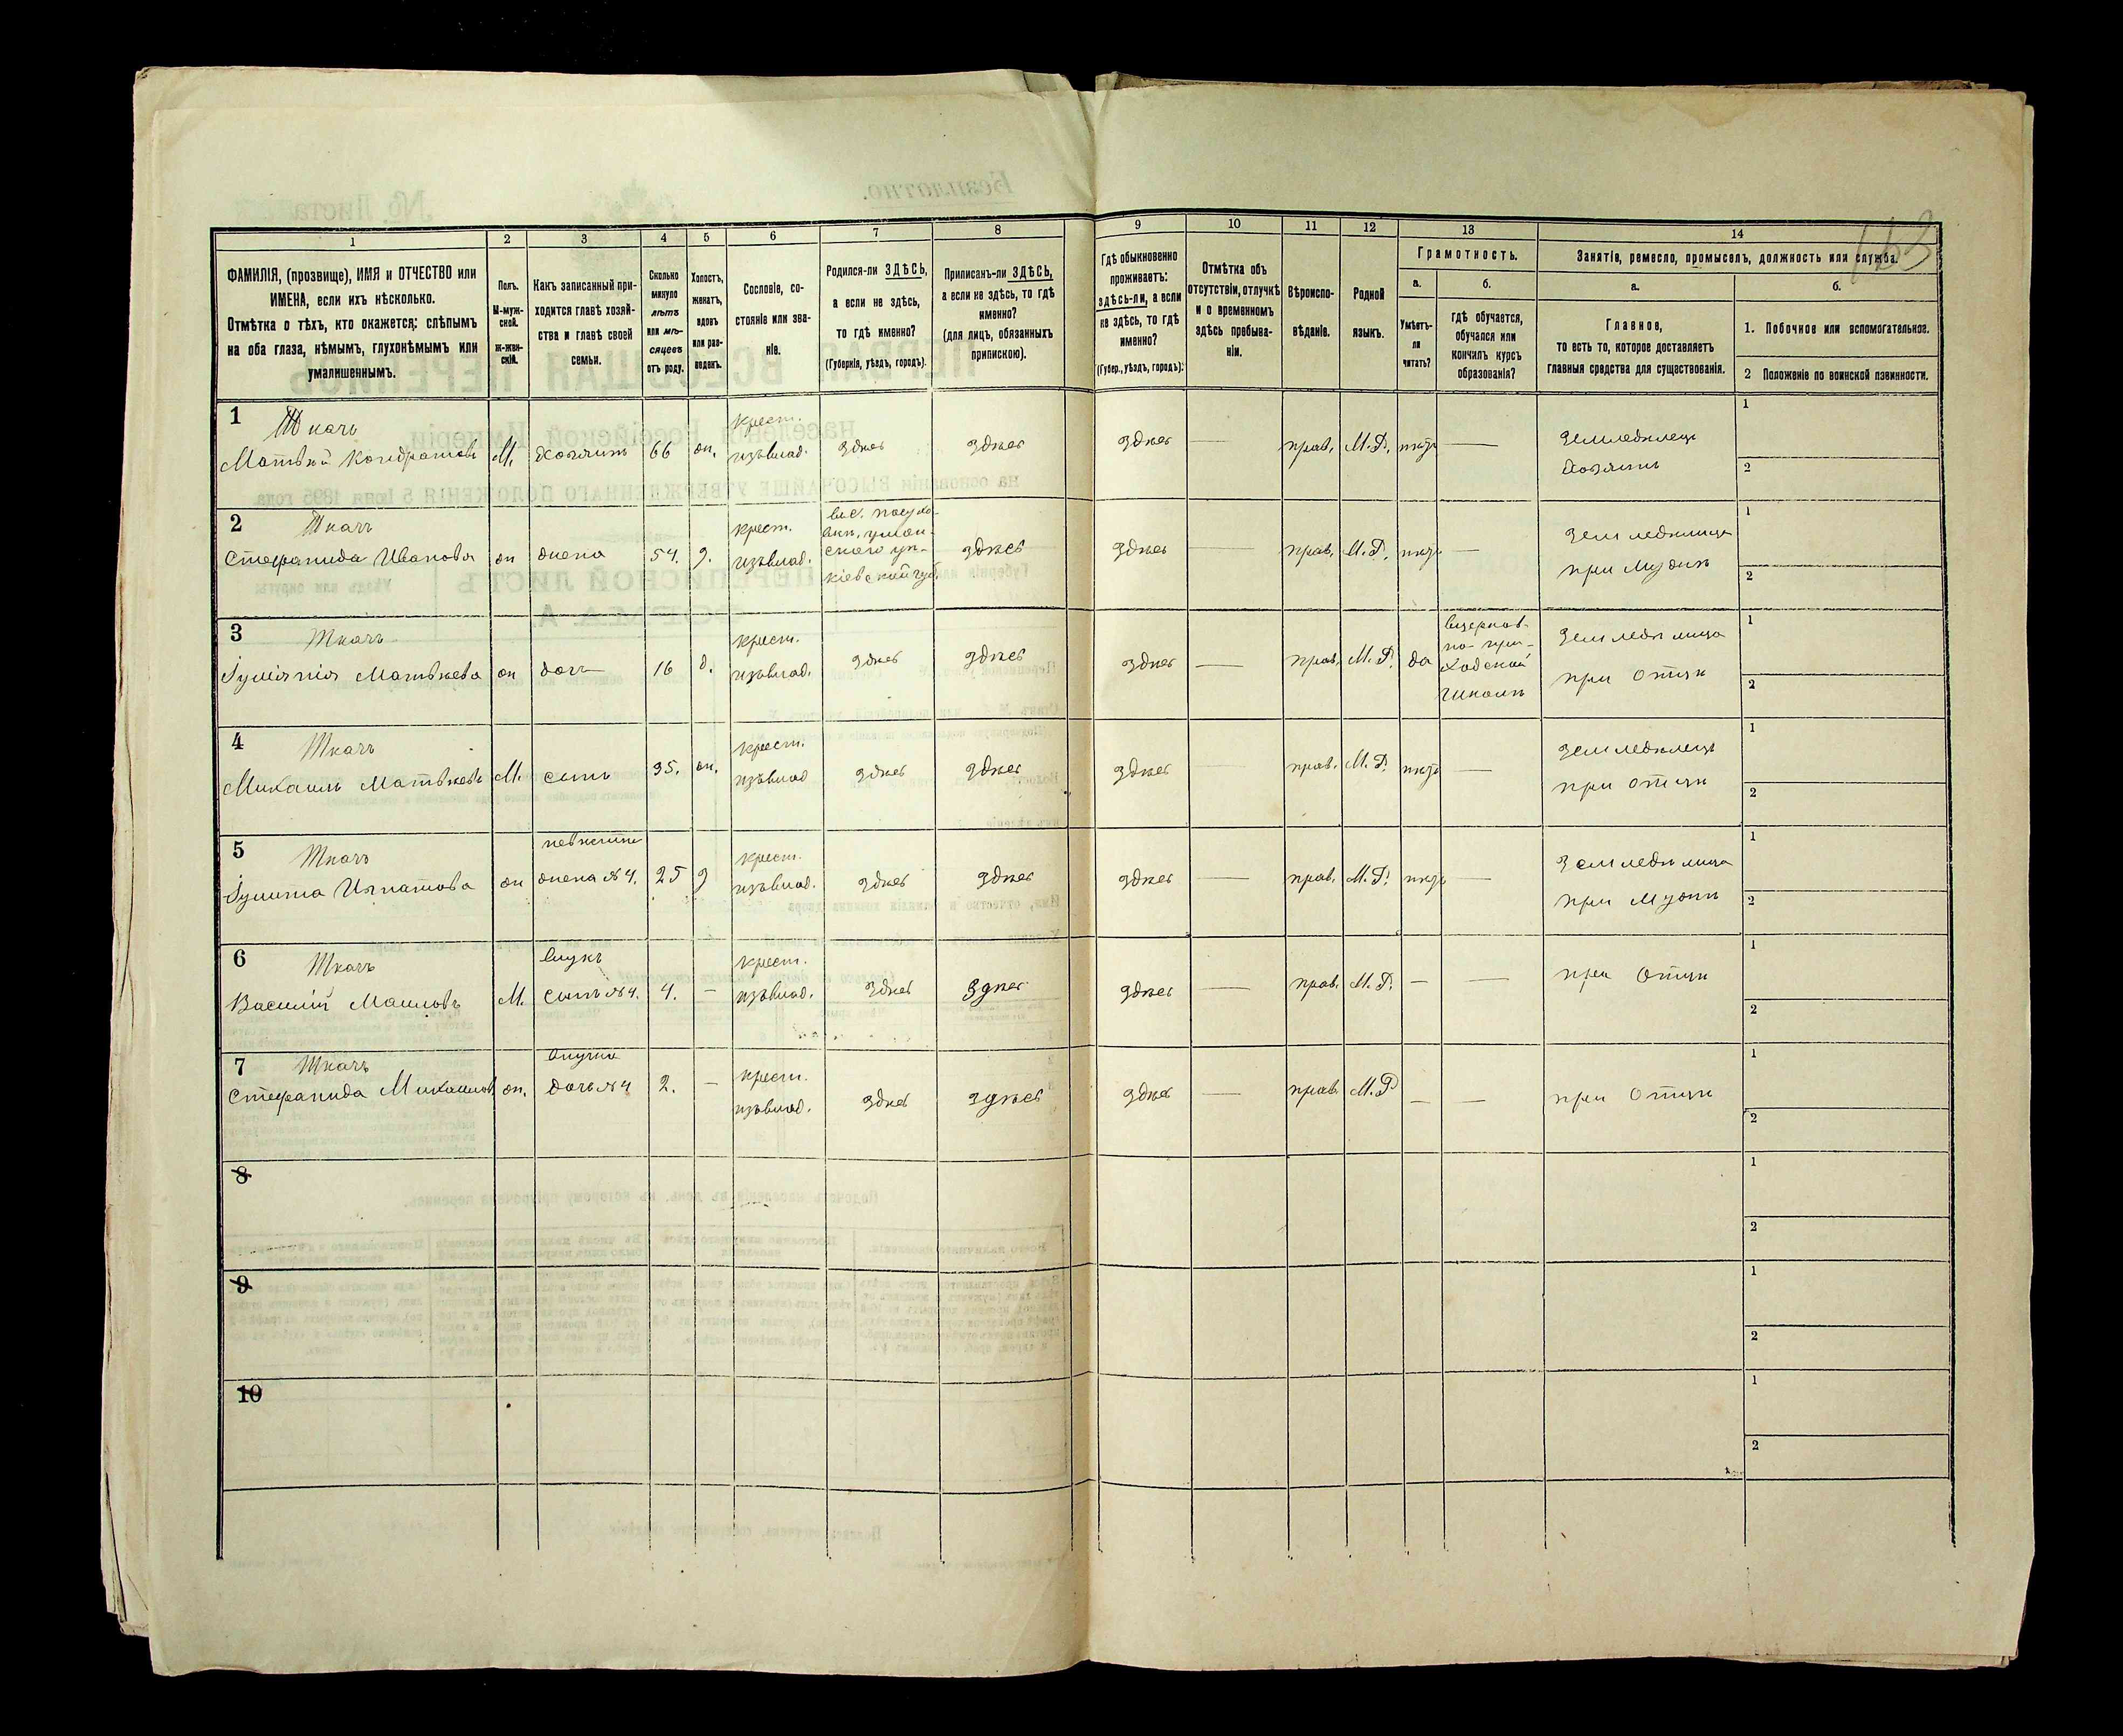 163
1
2
3
4
5
6
7
8
9
10
11
12
13
14
ФАМИЛІЯ, (прозвище), ИМЯ и ОТЧЕСТВО или
ИМЕНА, если ихъ нѣсколько.
Отмѣтка о тѣхъ, кто окажется: слѣпымъ
на оба глаза, нѣмымъ, глухонѣмымъ или
умалишеннымъ.
Полъ.
М-муж-
ской.
Ж-жен-
скій.
Какъ записанный при-
ходится главѣ хозяй-
ства и главѣ своей
семьи.
Сколько
минуло
лѣтъ
или мѣ-
сяцевъ
отъ роду.
Холостъ,
женатъ,
вдовъ
или раз-
веденъ.
Сословіе, со-
стояніе или зва-
ніе.
Родился-ли ЗДѢСЬ,
а если не здѣсь,
то гдѣ именно?
(Губернія, уѣздъ, городъ).
Приписанъ-ли ЗДѢСЬ,
а если не здѣсь, то гдѣ
именно?
(для лицъ, обязанныхъ
припискою).
Гдѣ обыкновенно
проживаетъ:
здѣсь-ли, а если
не здѣсь, то гдѣ
именно?
(Губер., уѣздъ, городъ).
Отмѣтка объ
отсутствіи, отлучкѣ
и о временномъ
здѣсь пребыва-
ніи.
Вѣроиспо-
вѣданіе.
Родной
языкъ.
Грамотность.
а.
Умѣетъ-
ли
читать?
б.
гдѣ обучается,
обучался или
кончилъ курсъ
образованія?
Занятіе, ремесло, промыселъ, должность или служба.
а.
Главное,
то есть то, которое доставляетъ
главныя средства для существованія.
б.
1. Побочное или вспомогательное.
2 Положеніе по воинской повинности.
1
Ткачъ
Матвѣй Кондратовъ
М.
Хозяинъ
66
ж.
крест.
изъвлад.
здѣсь
здѣсь
здѣсь
—
прав.
М.Р.
нѣтъ
—
Земледѣлецъ
Хозяинъ
1
2
2
Ткачъ
Стефанида Иванова
ж
жена
54.
з.
крест.
изъвлад.
кіевской губ.
здѣсь
здѣсь
—
прав.
М.Р.
нѣтъ
—
Земледѣлица
при Мужѣ
1
2
3
Ткачъ
Матвѣева
ж
дочь
16
д.
крест.
изъвлад.
здѣсь
здѣсь
здѣсь
—
прав.
М.Р.
да
вцерков-
но-при-
ходской
школѣ
Земледѣлица
при Отцѣ
1
2
4
Ткачъ
Михаилъ Матвѣевъ
М.
сынъ
35.
ж.
крест.
изъвлад
здѣсь
здѣсь
здѣсь
—
прав.
М.Р.
нѣтъ
—
Земледѣлецъ
при Отцѣ
1
2
5
Ткачъ
Игнатова
ж
невѣстка
жена №4.
25
з
крест.
изъвлад.
здѣсь
здѣсь
здѣсь
—
прав.
М.Р.
нѣтъ
—
Земледѣлица
при Мужѣ
1
2
6
Ткачъ
Василій
М.
Внукъ
сынъ №4.
4.
—
крест.
изъвлад.
здѣсь
здѣсь
здѣсь
—
прав.
М.Р.
—
—
при Отцѣ
1
2
7
Ткачъ
Стефанида Михаилов
ж.
Внучка
дочь №4
2.
—
крест.
изъвлад.
здѣсь
здѣсь
здѣсь
—
прав.
М.Р
—
—
при Отцѣ
1
2
8
1
2
9
1
2
10
1
2